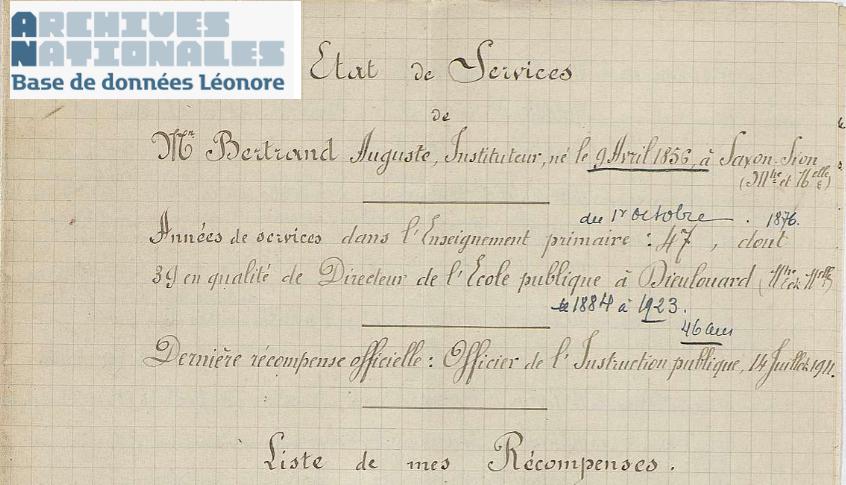 ARCHIVES
NATIONALES
Base de données Léonore
Etat de Services
de
Mr Bertrand Auguste, Instituteur, né le 9 Avril 1856, à Saxon-Sion
(Mthe et Mselle)
du 1er octobre 1876.
Années de services dans l'Enseignement primaire : 47, dont
39 en qualité de Directeur de l'Ecole publique à Dieulouard (Mthe et Mselle)
1884 à 1923.
46 ans
Dernière récompense officielle : Officier de l'Instruction publique, 14 Juillet 1911.
Liste de mes Récompenses.